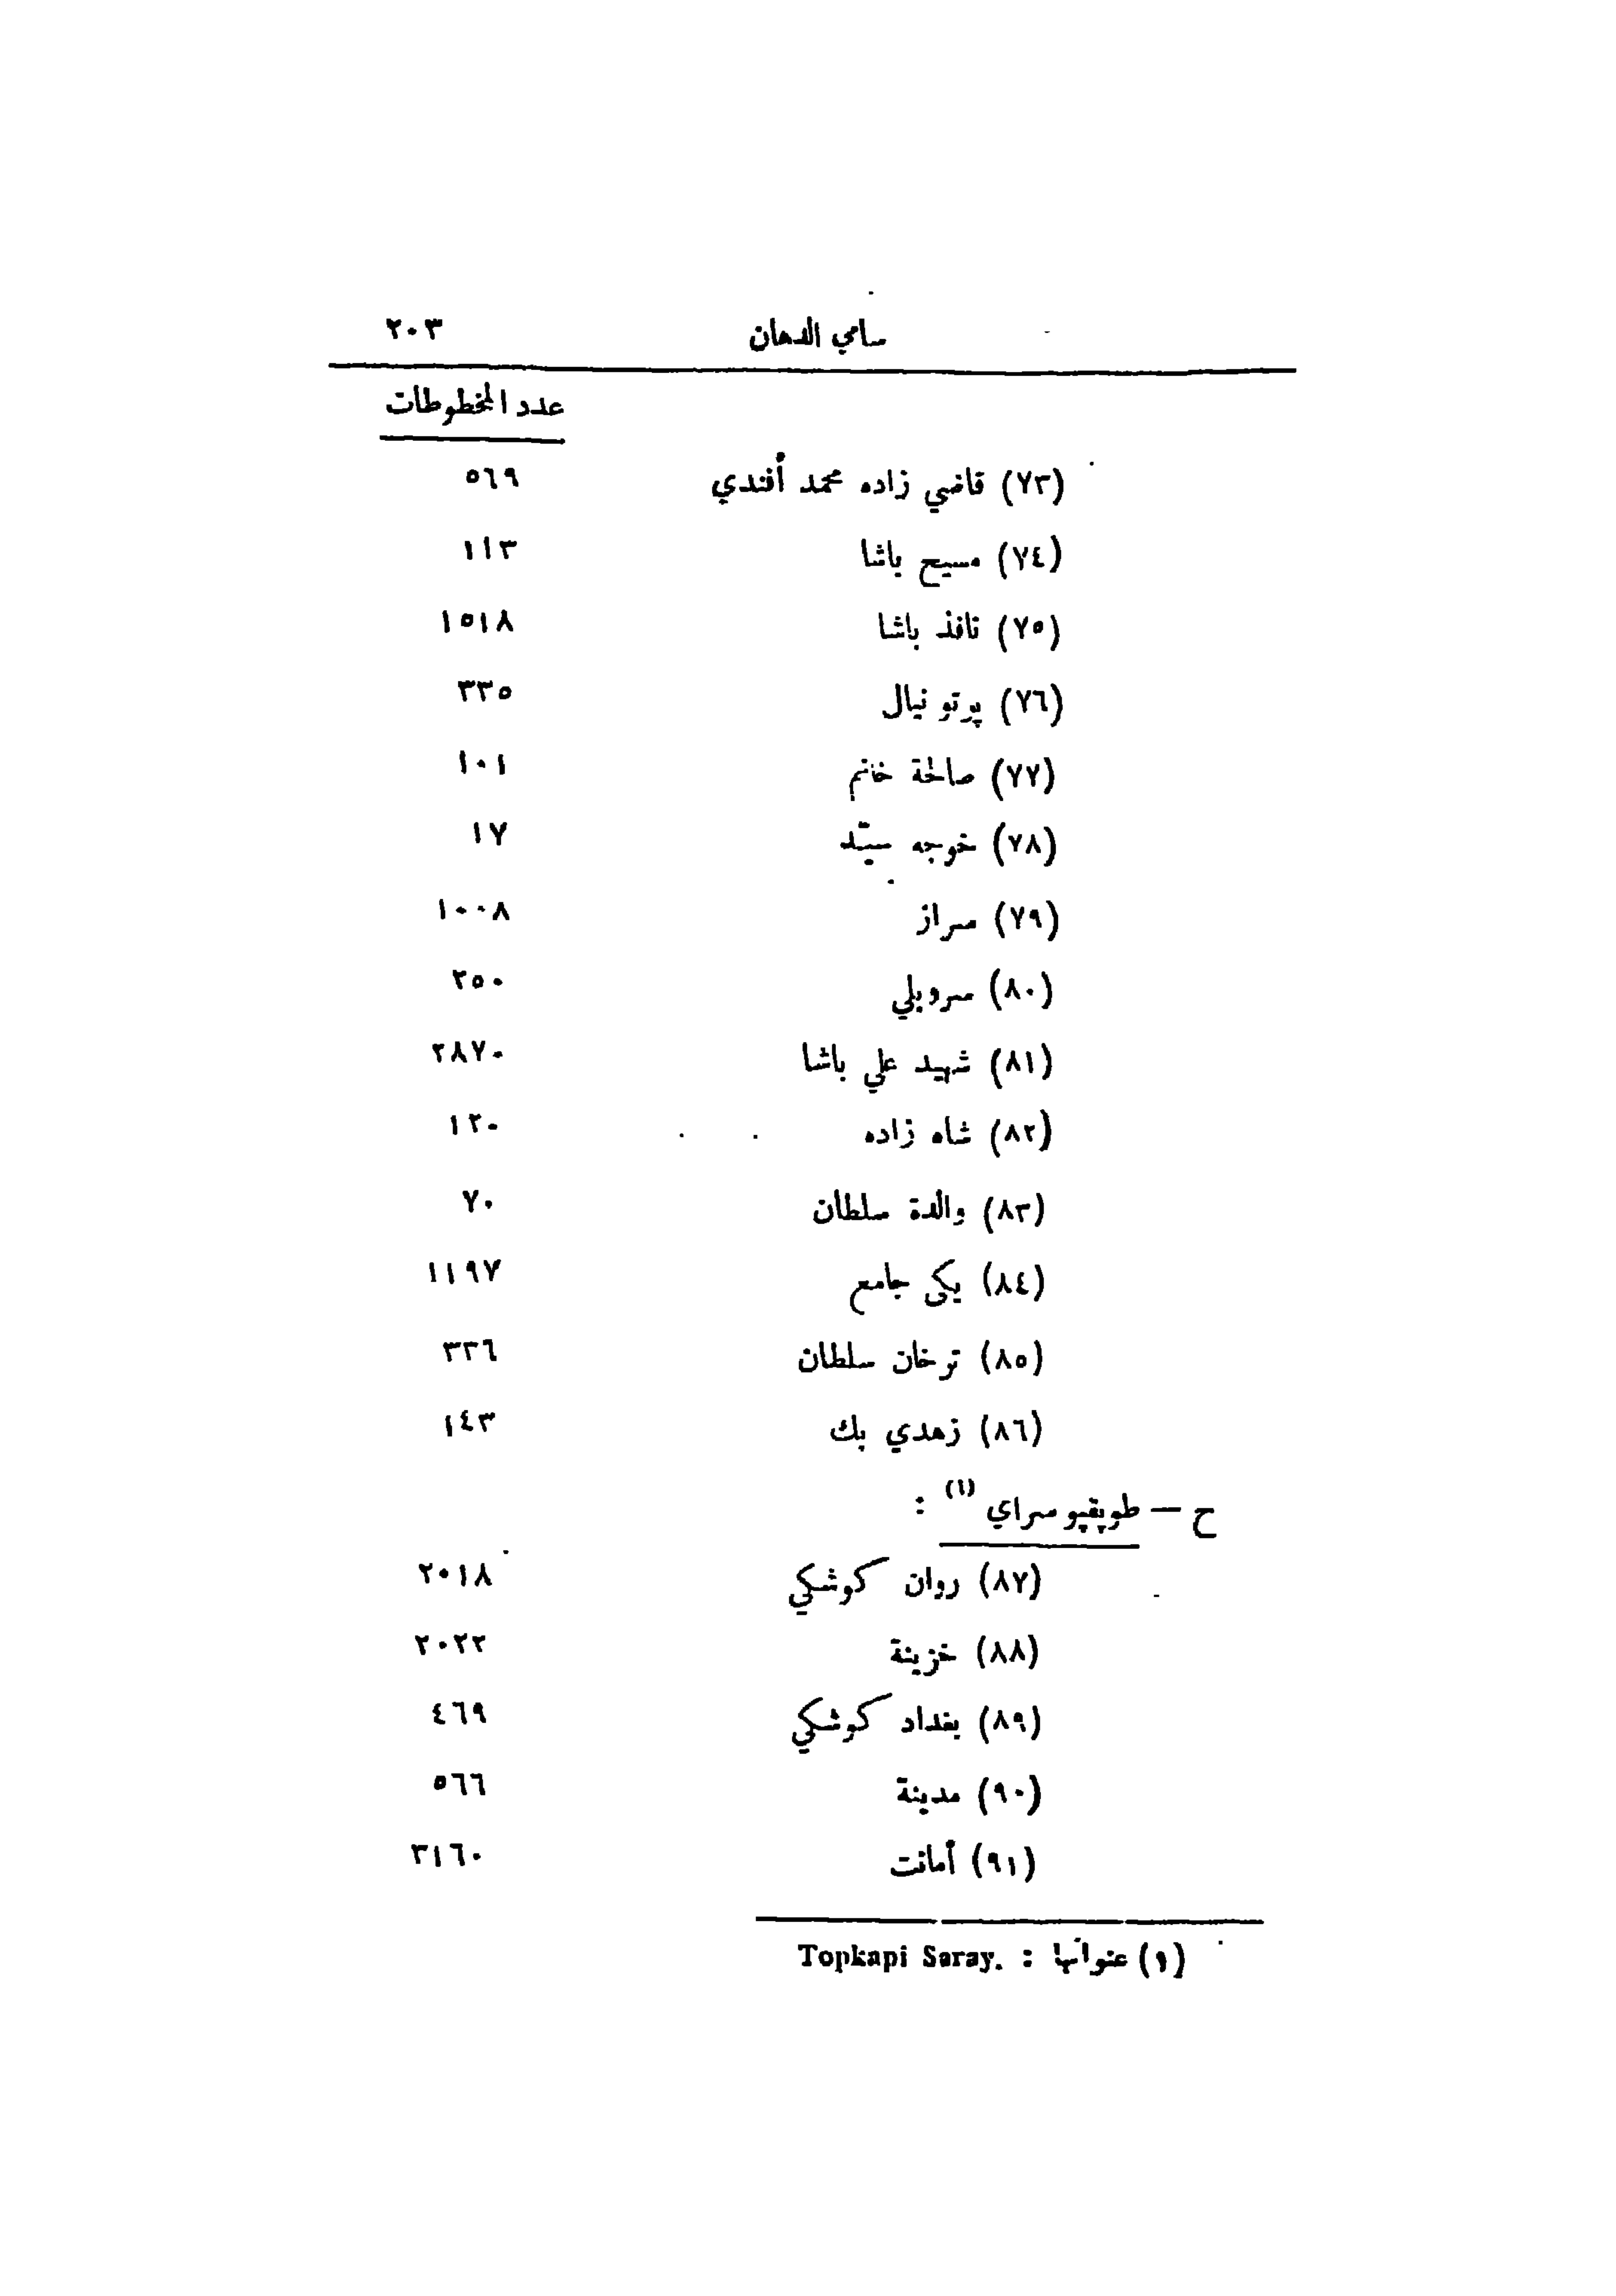 سامي الدهان ٢٠٣
عدد المخطوطات
(٧٣) قاضي زاده محمد أفندي ٥٦٩
(٧٤) مسيح باشا ١١٣
(٧٥) نافذ باشا ١٥١٨
(٧٦) پرتو نيال ٣٣٥
(٧٧) صالحة خانم ١٠١
(٧٨) خوجه سيّد ١٧
(٧٩) سراز ١٠٠٨
(٨٠) سرويلي ٢٥٠
(٨١) شهيد علي باشا ٢٨٧٠
(٨٢) شاه زاده ١٢٠
(٨٣) والدة سلطان ٧٠
(٨٤) يكى جامع ١١٩٧
(٨٥) ترخان سلطان ٣٣٦
(٨٦) زهدي بك ١٤٣
ح — طوپقپو سراي (١) :
(٨٧) روان كوشكي ٢٠١٨
(٨٨) خزينة ٢٠٢٢
(٨٩) بغداد كوشكي ٤٦٩
(٩٠) مدينة ٥٦٦
(٩١) أمانت ٣١٦٠
(١) عنوانها : Topkapi Saray.